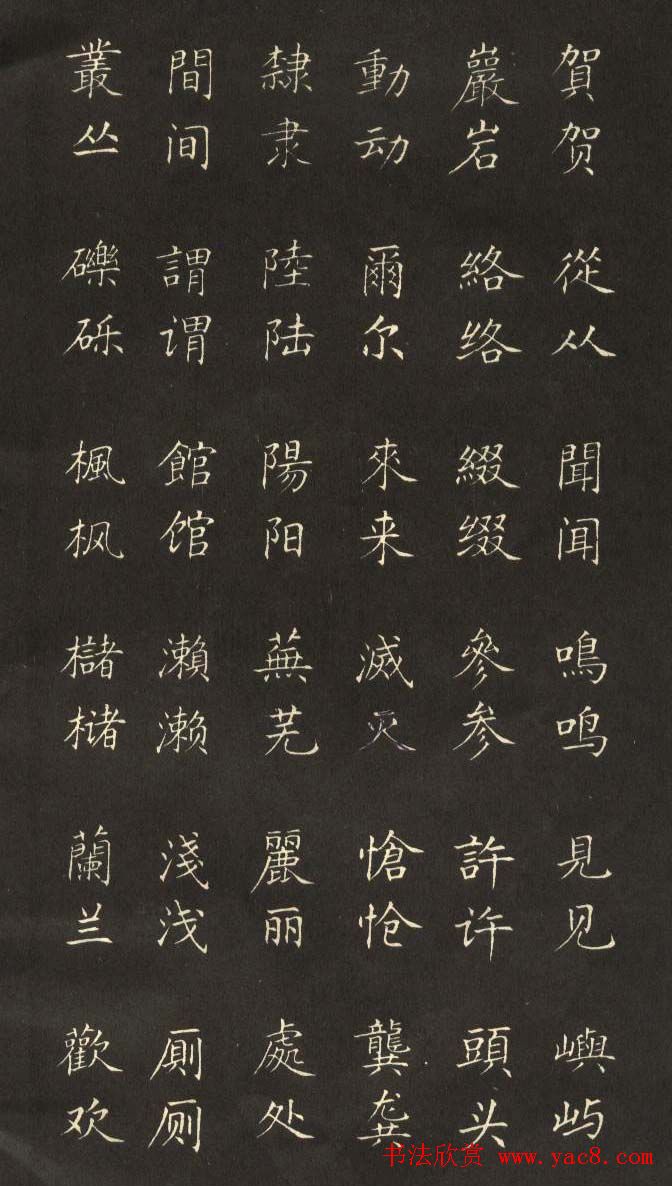 賀贺從从聞闻鳴鸣見见嶼屿
巖岩絡络綴缀參参許许頭头
動动爾尔來来滅灭愴怆龔龚
隸隶陸陆陽阳蕪芜麗丽處处
間间謂谓館馆瀨濑淺浅厠厕
叢丛礫砾楓枫櫧槠蘭兰歡欢
书法欣赏 www.yac8.com